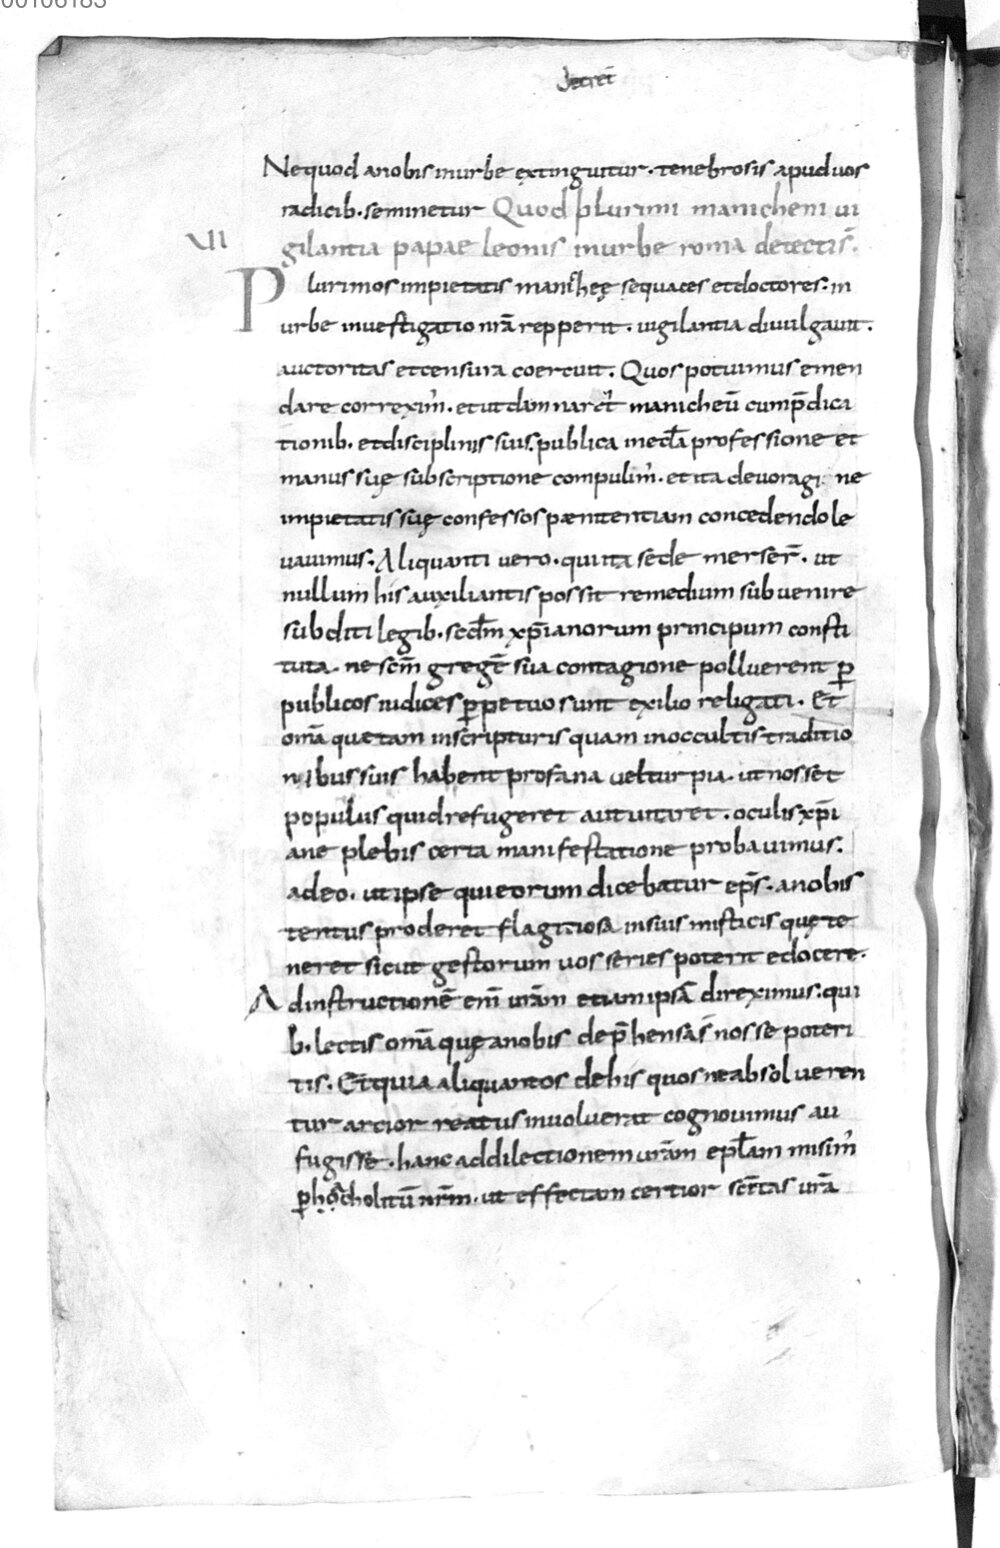 00106183
decret̄
Ne quod a nobis in urbe extinguitur · tenebrosis apud uos
radicib · seminetur Quod plurimi manicheni ui
VI
gilantia papae leonis in urbe roma detectis̄ .
Plurimos impietatis manichęę sequaces et doctores : in
urbe inuestigatio nr̄a repperit · uigilantia diuulgauit .
auctoritas et censura coercuit . Quos potuimus emen
dare correxim̄ . et ut damnarēt manicheū cum p̄dica
tionib . et disciplinis suis . publica in eccl̄a professione et
manus suę subscriptione compulim̄ . et ita de uoragine
impietatis suę confessos paenitentiam concedendo le
uauimus . Aliquanti uero . qui ita se de merser̄ . ut
nullum his auxiliantis possit remedium subuenire
subditi legib . secd̄m xp̄ianorum principum consti
tuta . ne sc̄m gregē sua contagione polluerent ꝑ
publicos iudices ꝑpetuo sunt exilio religati . Et
om̄a quę tam in scripturis quam in occultis traditio
nibus suis habent profana uel turpia . ut nosset
populus quid refugeret aut uitaret . oculis xp̄i
ane plebis certa manifestatione probauimus :
adeo . ut ipse qui eorum dicebatur ep̄s . a nobis
tentus proderet flagitiosa in suis misticis quę te
neret sicut gestorum uos series poterit edocere .
Ad instructionē enī ur̄am etiam ipsā direximus : qui
b . lectis om̄a quę a nobis dep̄hensa s̄ nosse poteri
tis . Et quia aliquantos de his quos ne absolueren
tur arcior reatus inuoluerat cognouimus au
fugisse . hanc ad dilectionem ur̄am epl̄am misim̄
ꝑ acholitū nr̄m . ut effectam certior sc̄itas ur̄a